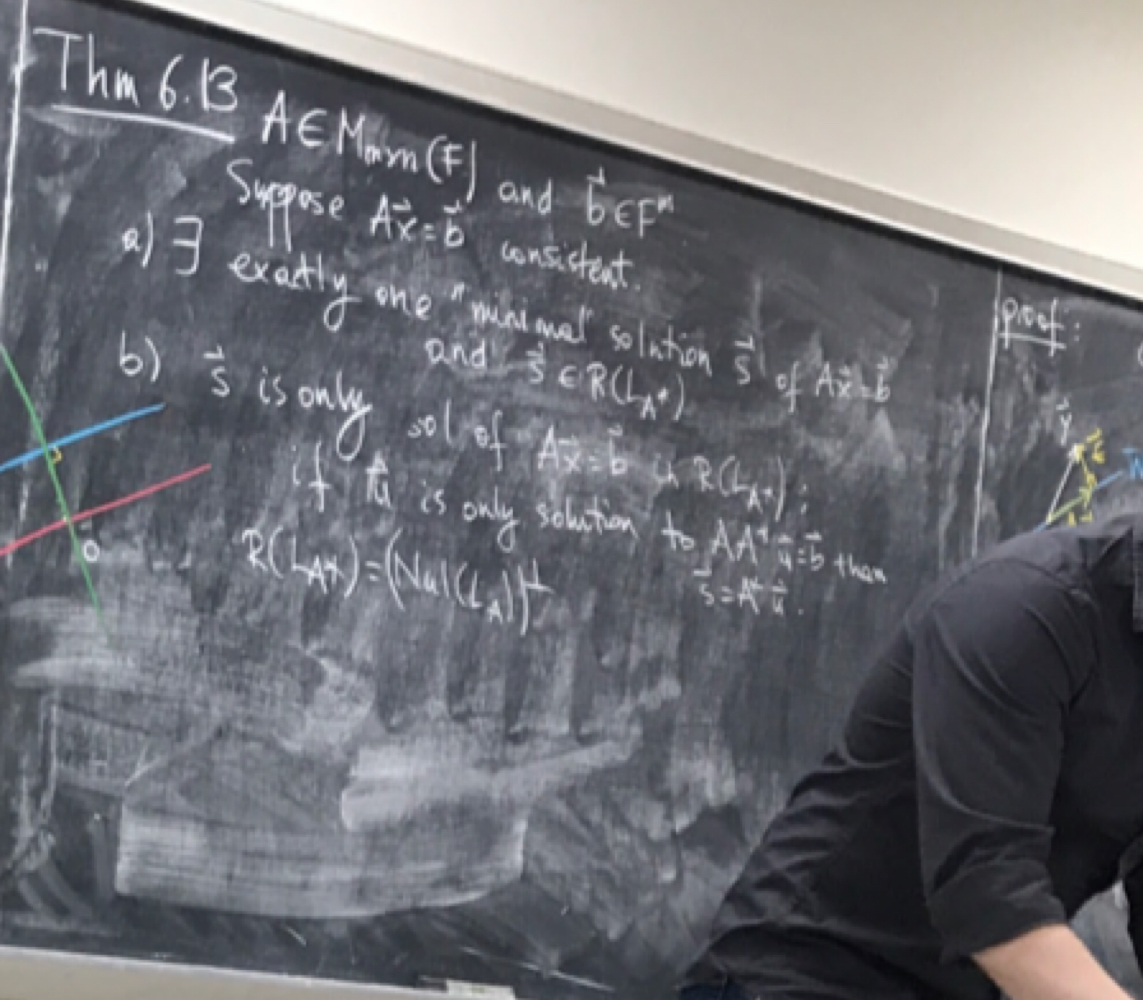 Thm 6.13 A∈M_{m×n}(F) and b⃗∈F^m
Suppose Ax⃗=b⃗ consistent.
a) ∃ exactly one "minimal" solution s⃗ of Ax⃗=b⃗
and s⃗∈R(L_{A*})
b) s⃗ is only sol of Ax⃗=b⃗ in R(L_{A*});
if u⃗ is only solution to AA* u⃗=b⃗ then
s⃗=A*u⃗.
R(L_{A*})=(Nul(L_A))^⊥
0⃗
proof:
y⃗